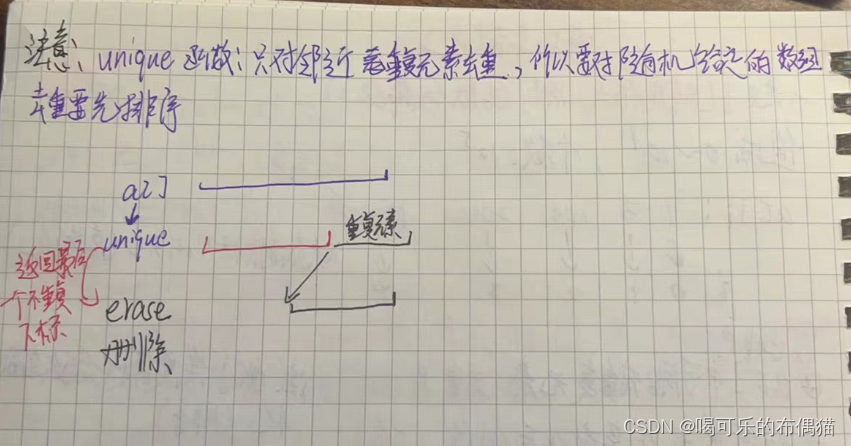 注意: unique 函数: 只对邻近重复元素去重, 所以要对随机给定的数组
去重要先排序
a[]
unique
重复元素
返回最后
一个不重复
下标
erase
删除
CSDN @喝可乐的布偶猫